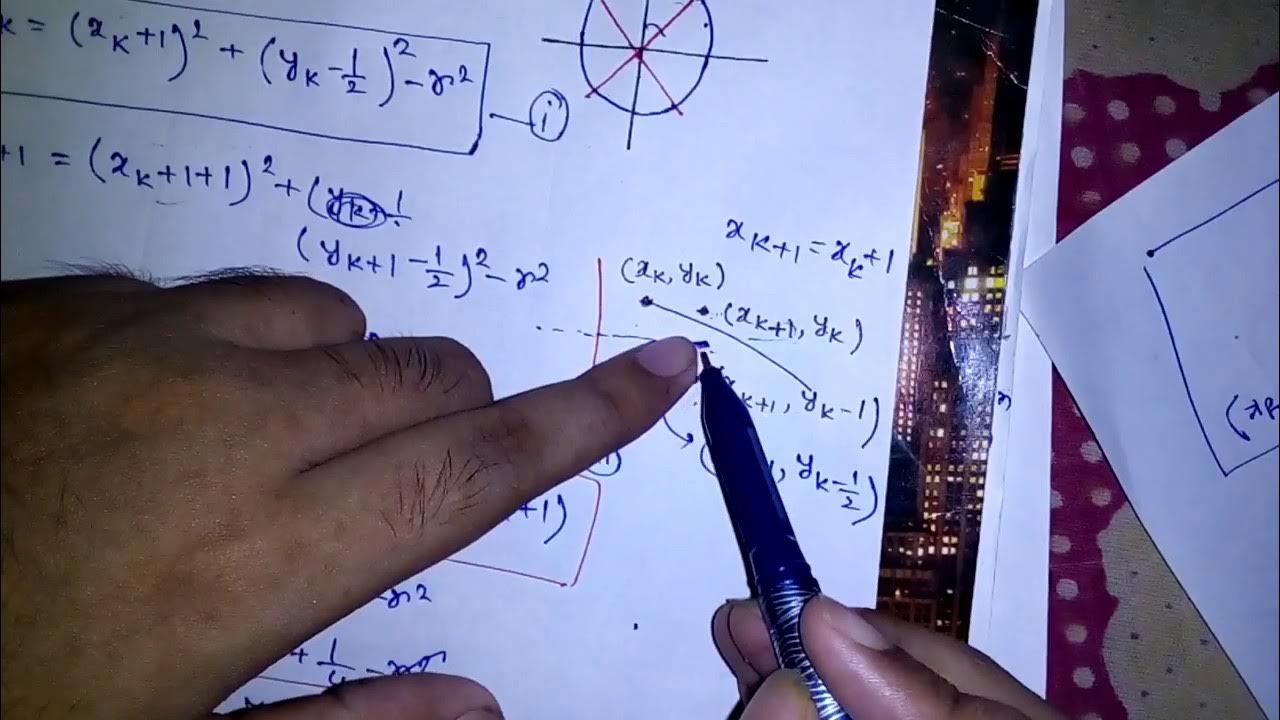 k = (x_k+1)² + (y_k - 1/2)² - r²
i
+1 = (x_k+1+1)² + (y_k - 1/
(y_k+1 - 1/2)² - r²
x_k+1 = x_k+1
(x_k, y_k)
(x_k+1, y_k)
k+1, y_k-1)
, y_k-1/2)
+1)
-r²
+ 1/4 - r²